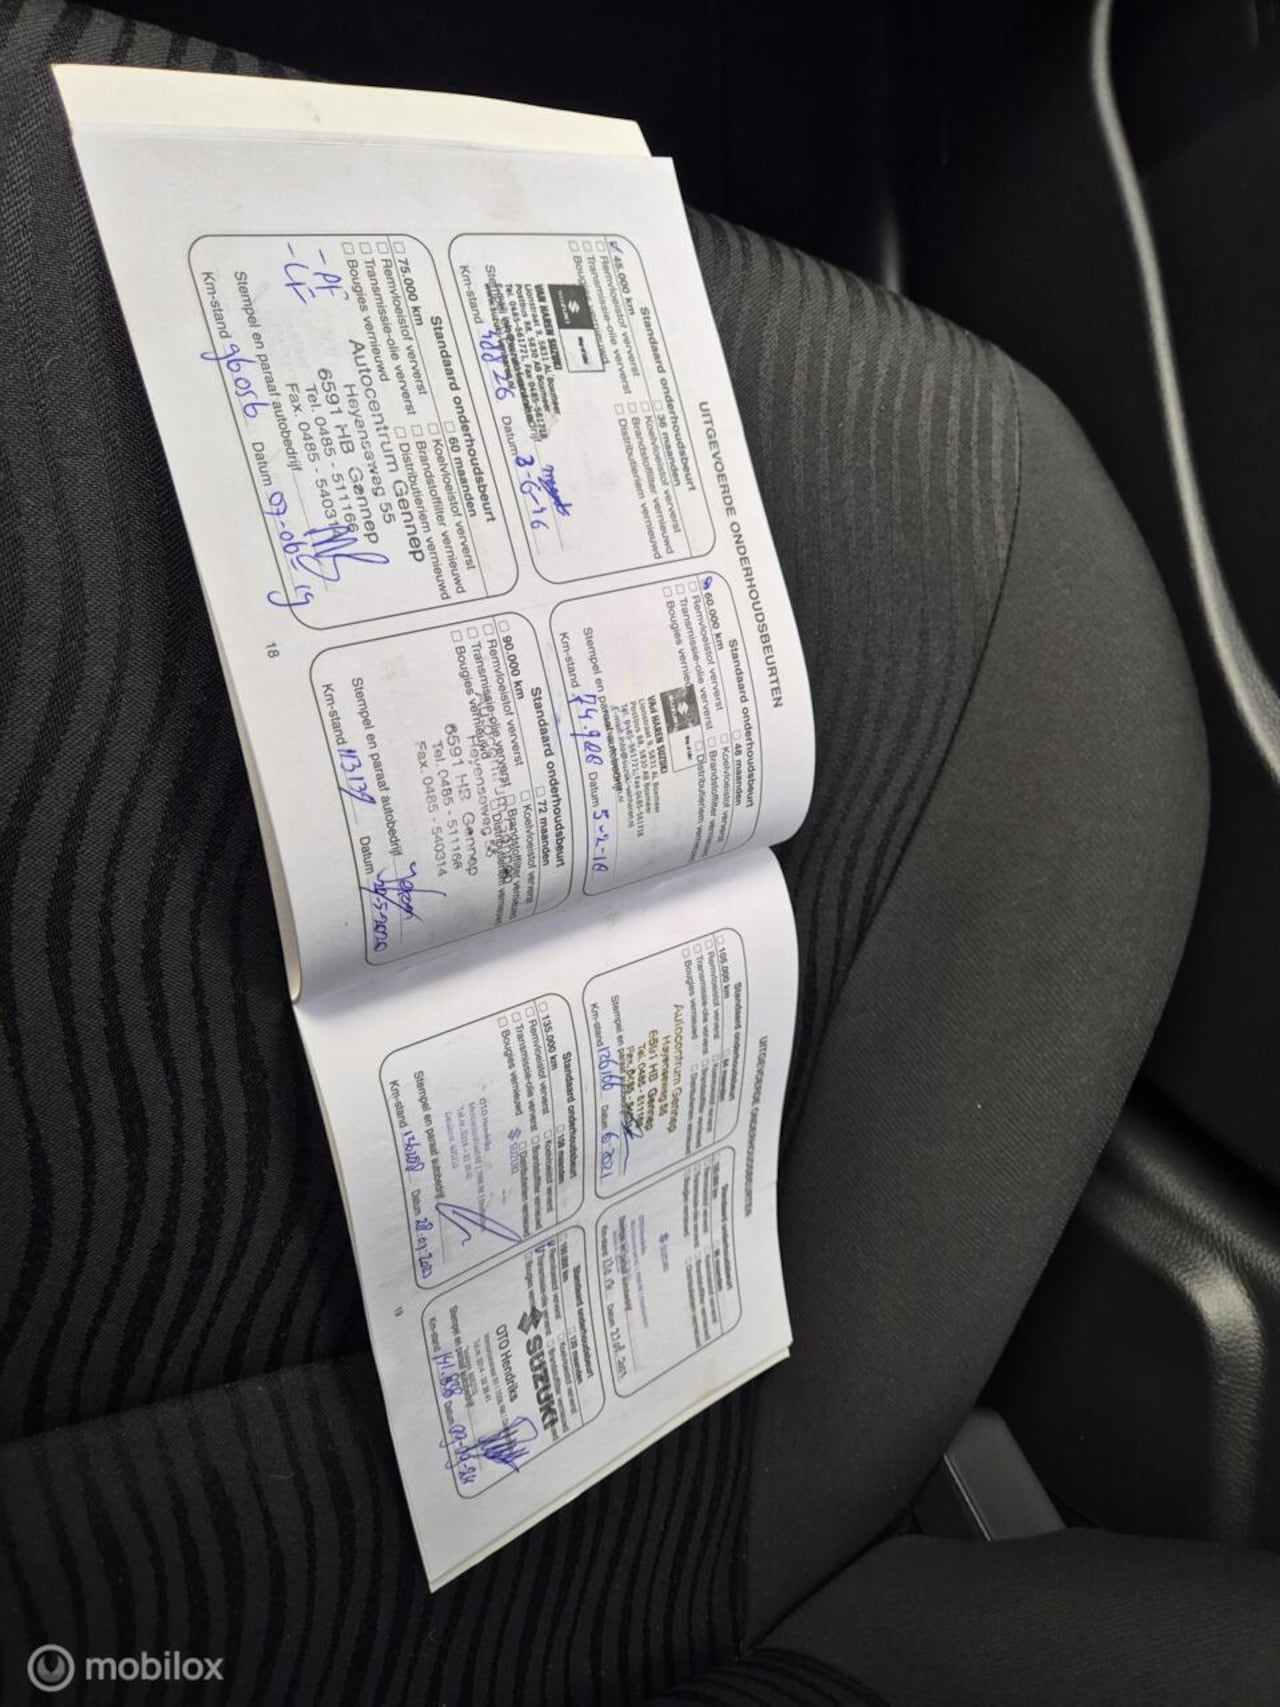 UITGEVOERDE ONDERHOUDSBEURTEN
Standaard onderhoudsbeurt
45.000 km
36 maanden
Remvloeistof ververst
Koelvloeistof ververst
Transmissie-olie ververst
Brandstoffilter vernieuwd
Bougies vernieuwd
Distributieriem vernieuwd
VAN HAREN SUZUKI
Lionstraat 9, 5831 AK Boxmeer
Postbus 88, 5830 AB Boxmeer
Tel. 0485-561721, Fax 0485-561718
Km-stand 48826 Datum 3-6-16
Standaard onderhoudsbeurt
60.000 km
48 maanden
Remvloeistof ververst
Koelvloeistof ververst
Transmissie-olie ververst
Brandstoffilter vernieuwd
Bougies vernieuwd
Distributieriem vernieuwd
VAN HAREN SUZUKI
Lionstraat 9, 5831 AK Boxmeer
Postbus 88, 5830 AB Boxmeer
Tel. 0485-561721, Fax 0485-561718
Stempel en paraaf autobedrijf
Km-stand 74.900 Datum 5-2-18
Standaard onderhoudsbeurt
75.000 km
60 maanden
Remvloeistof ververst
Koelvloeistof ververst
Transmissie-olie ververst
Brandstoffilter vernieuwd
Bougies vernieuwd
Distributieriem vernieuwd
- PF
- LF
Autocentrum Gennep
Heyenseweg 55
6591 HB Gennep
Tel. 0485 - 511166
Fax. 0485 - 540314
Stempel en paraaf autobedrijf
Km-stand 96056 Datum 07-06-19
Standaard onderhoudsbeurt
90.000 km
72 maanden
Remvloeistof ververst
Koelvloeistof ververst
Transmissie-olie ververst
Brandstoffilter vernieuwd
Bougies vernieuwd
Distributieriem vernieuwd
Heyenseweg 55
6591 HB Gennep
Tel. 0485 - 511166
Fax. 0485 - 540314
Stempel en paraaf autobedrijf
Km-stand 113139 Datum 29-5-2020
18
UITGEVOERDE ONDERHOUDSBEURTEN
Standaard onderhoudsbeurt
105.000 km
84 maanden
Remvloeistof ververst
Koelvloeistof ververst
Transmissie-olie ververst
Brandstoffilter vernieuwd
Bougies vernieuwd
Distributieriem vernieuwd
Autocentrum Gennep
Heyenseweg 55
6591 HB Gennep
Tel. 0485 - 511166
Stempel en paraaf
Km-stand 126166 Datum 6-2021
Standaard onderhoudsbeurt
96 maanden
SUZUKI
Km-stand Datum
Standaard onderhoudsbeurt
135.000 km
108 maanden
Remvloeistof ververst
Koelvloeistof ververst
Transmissie-olie ververst
Brandstoffilter vernieuwd
Bougies vernieuwd
Distributieriem vernieuwd
SUZUKI
OTO Hendriks
Stempel en paraaf autobedrijf
Km-stand Datum 28-07-2023
Standaard onderhoudsbeurt
150.000 km
120 maanden
Remvloeistof ververst
Koelvloeistof ververst
Transmissie-olie ververst
Brandstoffilter vernieuwd
Bougies
SUZUKI
OTO Hendriks
Stempel en paraaf autobedrijf
Km-stand 141.838 Datum 09-09-24
19
mobilox